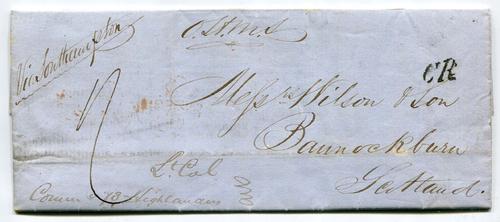 Via Southampton
O.H.M.S
CR
Messrs Wilson & Son
Bannockburn
Scotland.
Lt Col
Comm 93 Highlanders